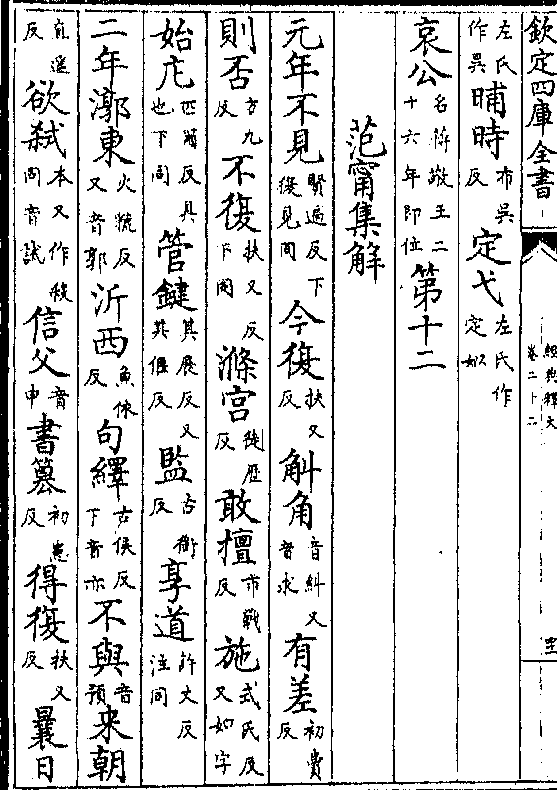 欽定四庫全書
經典釋文
卷二十二
左氏作吳晡時布吳反定弋左氏作定姒
哀公名蔣敬王二十六年即位第十二
范甯集解
元年不見賢遍反下復見同今復扶又反斛角音糾又音求有差初賣反
則否方九反不復扶又反下同滌宮徒歷反敢擅市戰反施式氏反又如字
始庀匹爾反具也下同管鍵其展反又其偃反監古銜反享道許丈反注同
二年漷東火虢反又音郭沂西魚依反句繹古侯反下音亦不與音預來朝
直遙反欲弒本又作殺同音試信父音申書篡初患反得復扶又反曩日